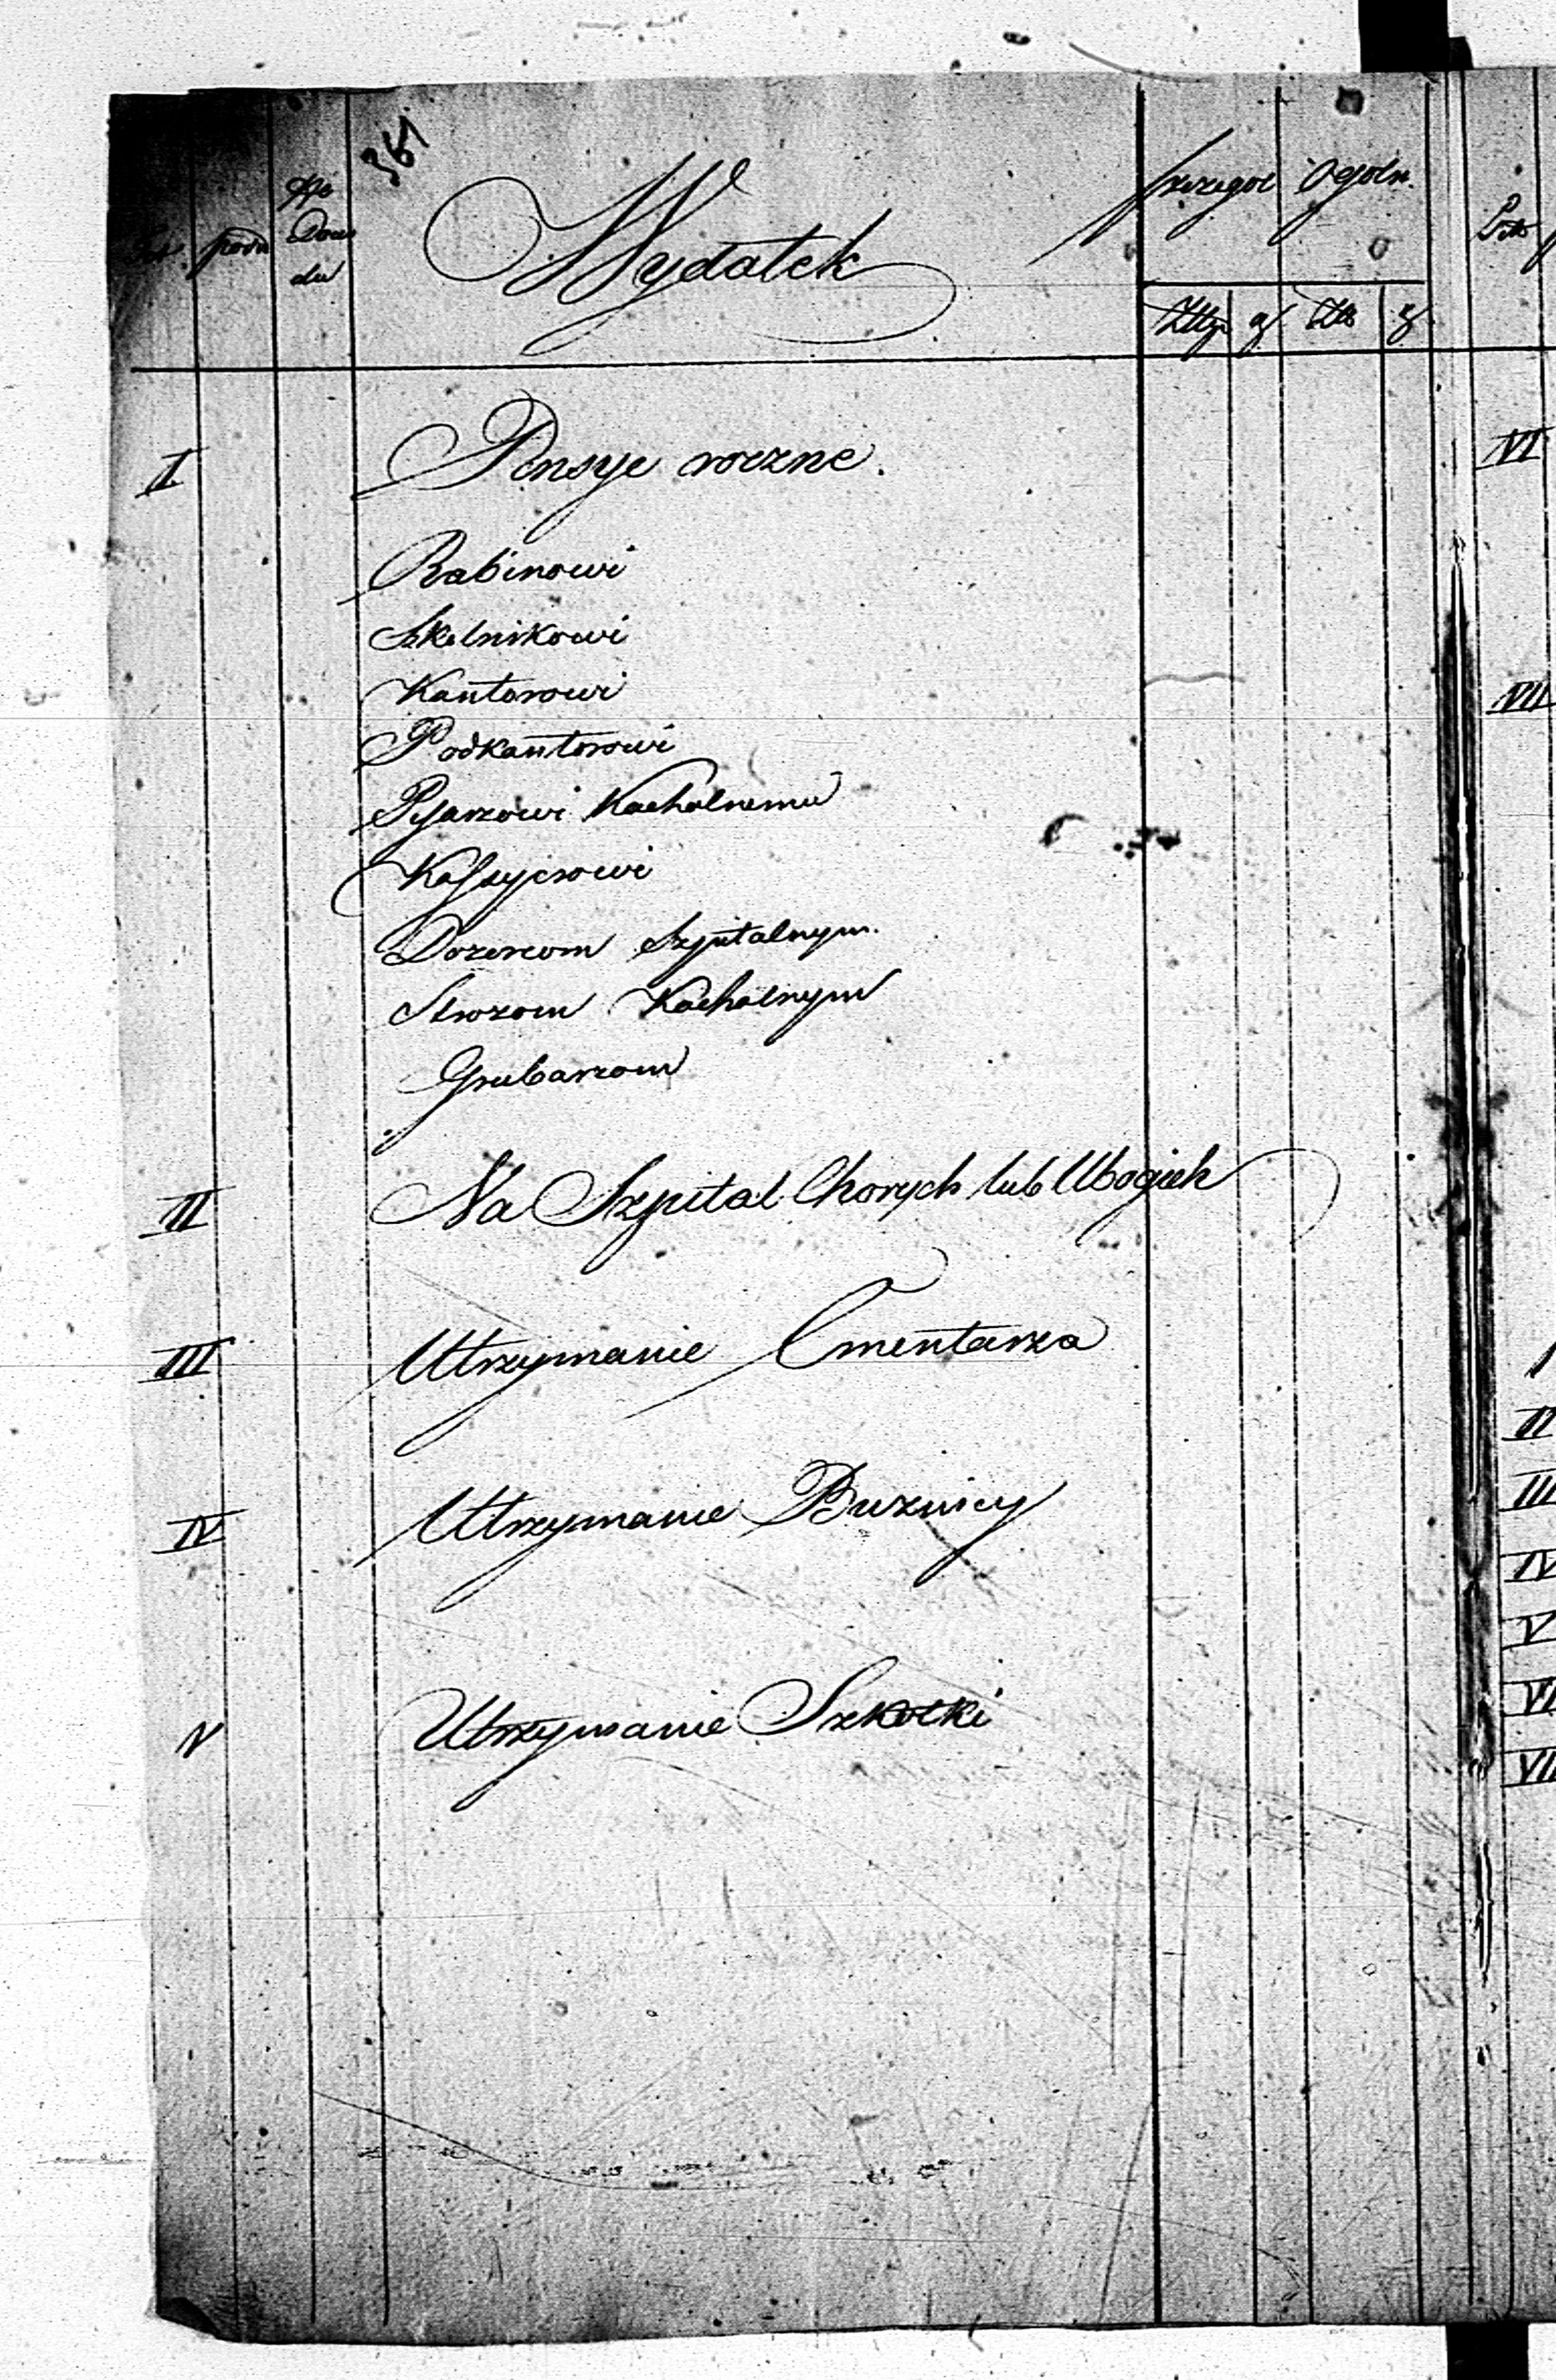 361
№ Dowo
du
Wydatek
szczegól Ogóln.
Złtp gr Złtp gr
I Pensye roczne.
Rabinowi
Szkolnikowi
Kantorowi
Podkantorowi
Pisarzowi Kachalnemu
Kassyerowi
Dozorcom Szpitalnym.
Strozom Kachalnym
Grubarzom
II Na Szpital Chorych lub Ubogich
III Utrzymanie Cmentarza
IV Utrzymanie Buznicy
V Utrzymanie Szkołki
VI
VII
I
II
III
IV
V
VI
VII